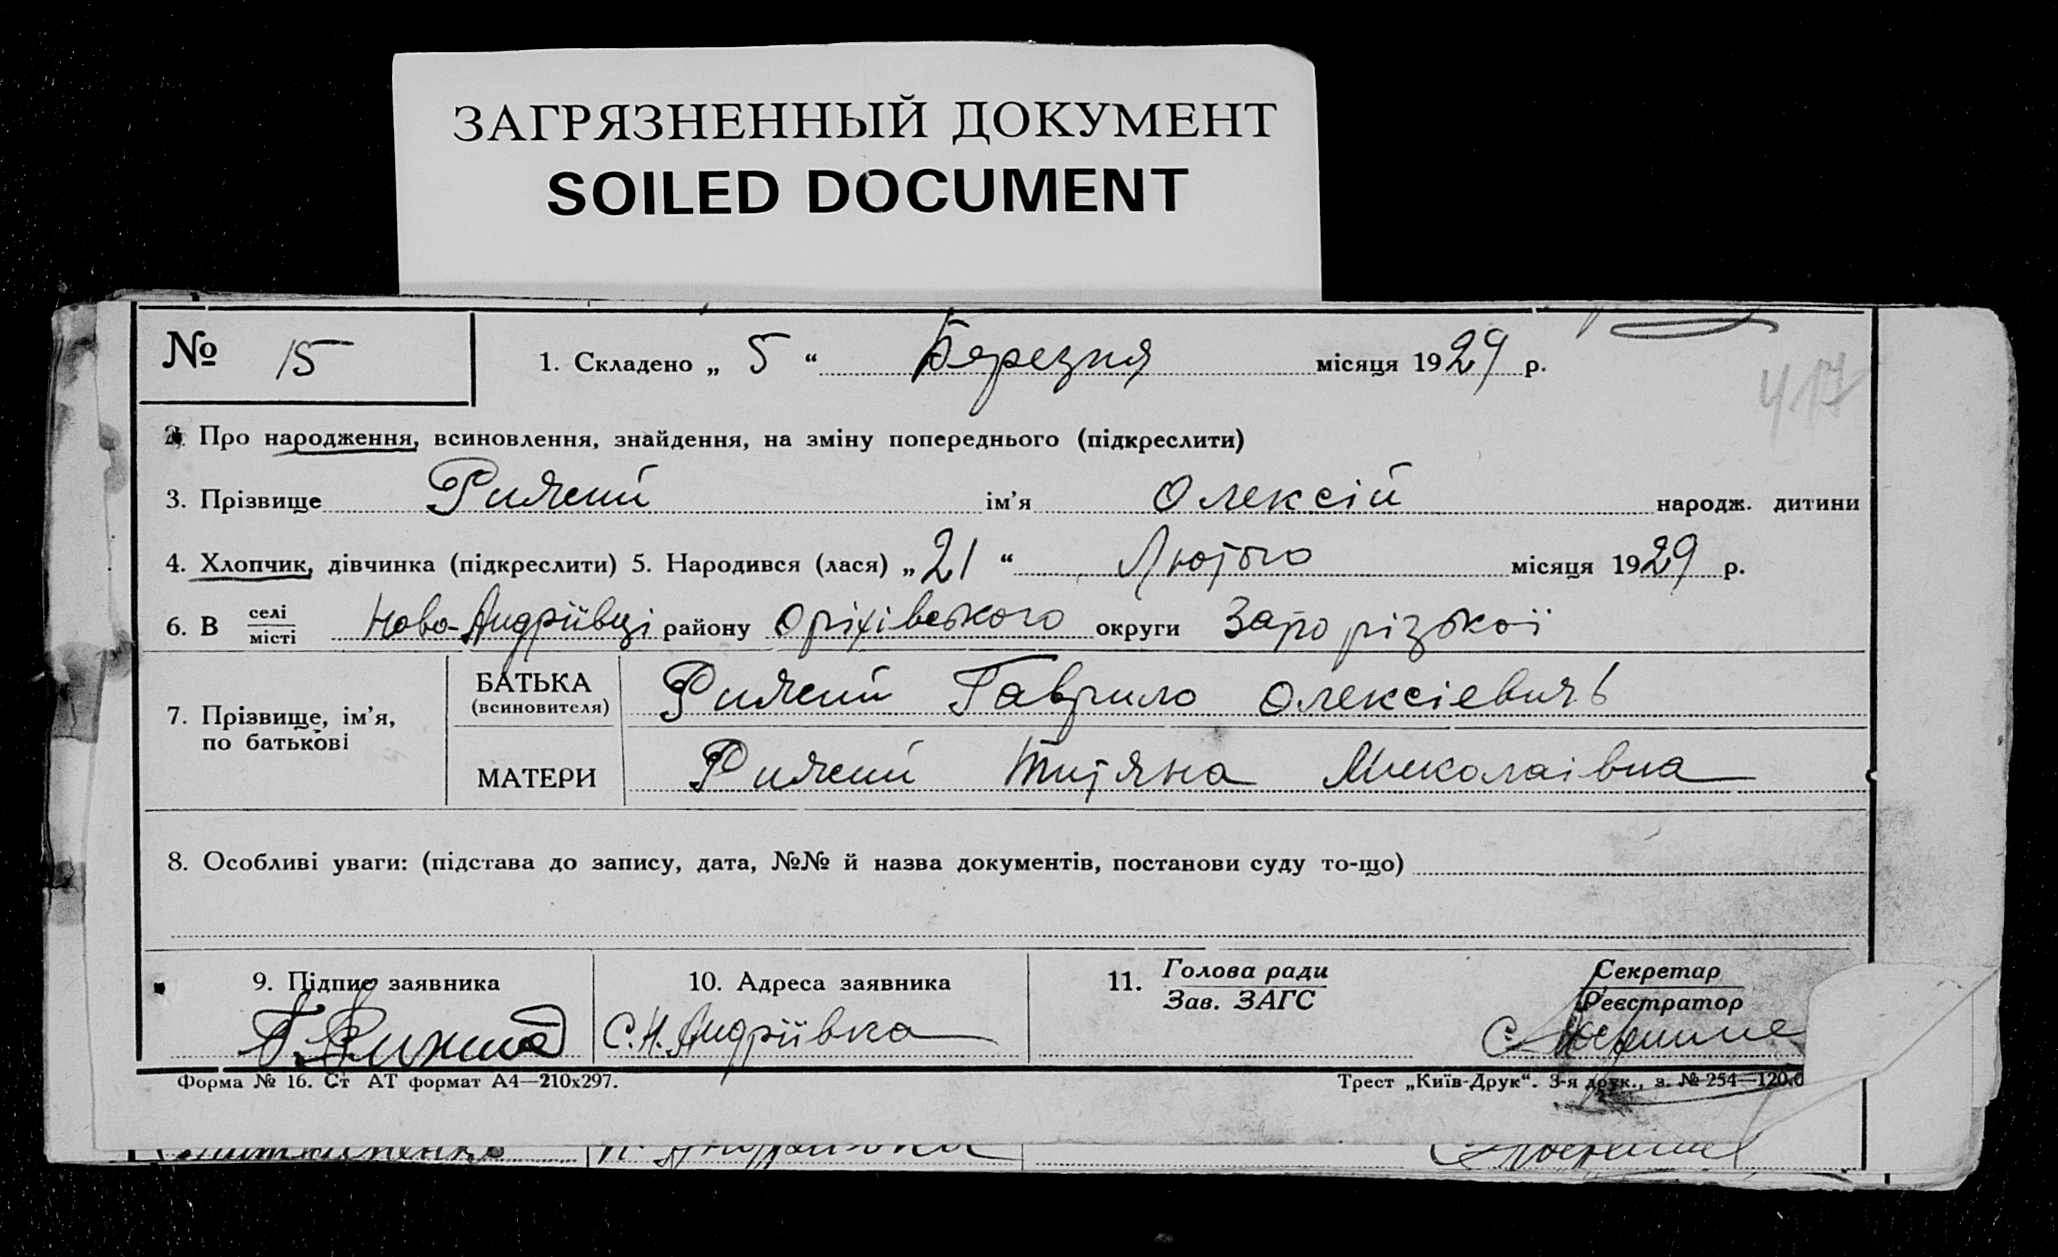 ЗАГРЯЗНЕННЫЙ ДОКУМЕНТ
SOILED DOCUMENT
№ 15
1. Складено „ 5 “ Березня місяця 1929 р.
417
2. Про народження, всиновлення, знайдення, на зміну попереднього (підкреслити)
3. Прізвище Рижий ім'я Олексій народж. дитини
4. Хлопчик, дівчинка (підкреслити) 5. Народився (лася) „ 21 “ Лютого місяця 1929 р.
6. В селі
місті Ново-Андріївці району Оріхівського округи Запорізької
7. Прізвище, ім'я,
по батькові
БАТЬКА
(всиновителя)
Рижий Гаврило Олексієвичь
МАТЕРИ
Рижий Титяна Миколаівна
8. Особливі уваги: (підстава до запису, дата, №№ й назва документів, постанови суду то-що)
9. Підпис заявника
Г. Рижий
10. Адреса заявника
С. Н. Андріївка
11. Голова ради
Зав. ЗАГС
Секретар
Реєстратор
Форма № 16. Ст АТ формат А4—210х297.
Трест „Київ-Друк“. 3-я друк., з. № 254—120.0